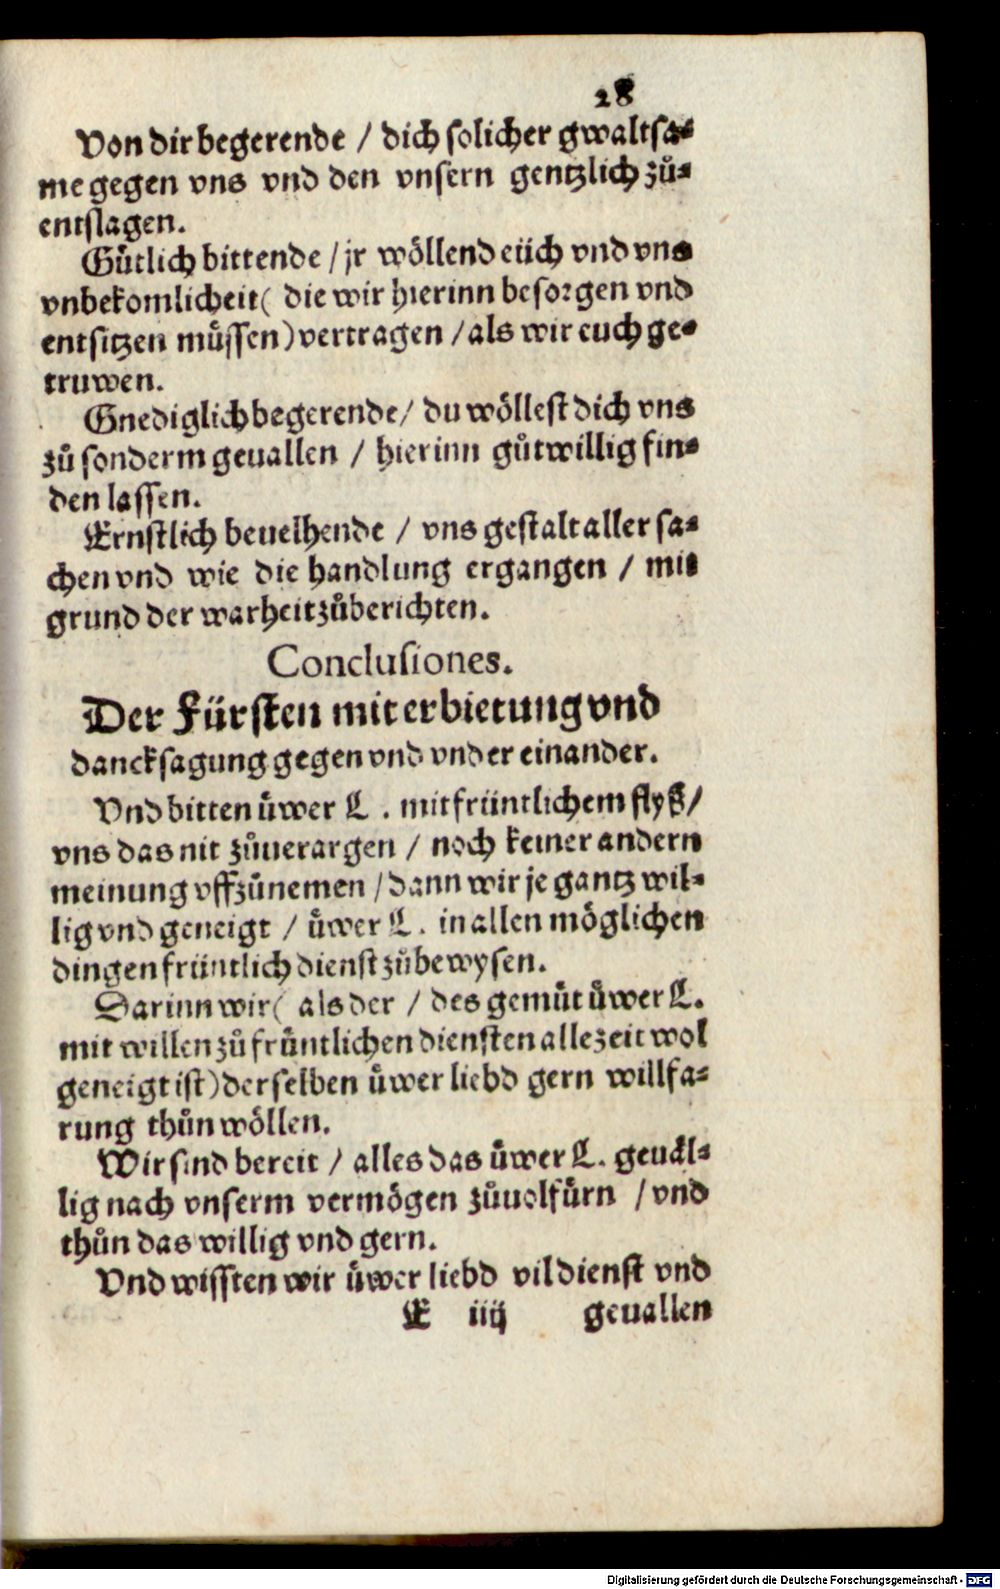 28
Von dir begerende / dich solicher gwaltsa⸗
me gegen vns vnd den vnsern gentzlich zů⸗
entslagen.
Gůtlich bittende / jr wöllend eüch vnd vns
vnbekomlicheit( die wir hierinn besorgen vnd
entsitzen müssen) vertragen / als wir euch ge⸗
truwen.
Gnediglich begerende / du wöllest dich vns
zů sonderm geuallen / hierinn gůtwillig fin⸗
den lassen.
Ernstlich beuelhende / vns gestalt aller sa⸗
chen vnd wie die handlung ergangen / mit
grund der warheit zůberichten.
Conclusiones.
Der Fürsten mit erbietung vnd
dancksagung gegen vnd vnder einander.
Vnd bitten üwer L. mit früntlichem flyß /
vns das nit zůuerargen / noch keiner andern
meinung vffzůnemen / dann wir je gantz wil⸗
lig vnd geneigt / üwer L. in allen möglichen
dingen früntlich dienst zůbewysen.
Darinn wir( als der / des gemüt üwer L.
mit willen zů früntlichen diensten allezeit wol
geneigt ist) derselben üwer liebd gern willfa⸗
rung thůn wöllen.
Wir sind bereit / alles das üwer L. geuäl⸗
lig nach vnserm vermögen zůuolfürn / vnd
thůn das willig vnd gern.
Vnd wissten wir üwer liebd vil dienst vnd
E iiij geuallen
Digitalisierung gefördert durch die Deutsche Forschungsgemeinschaft - DFG